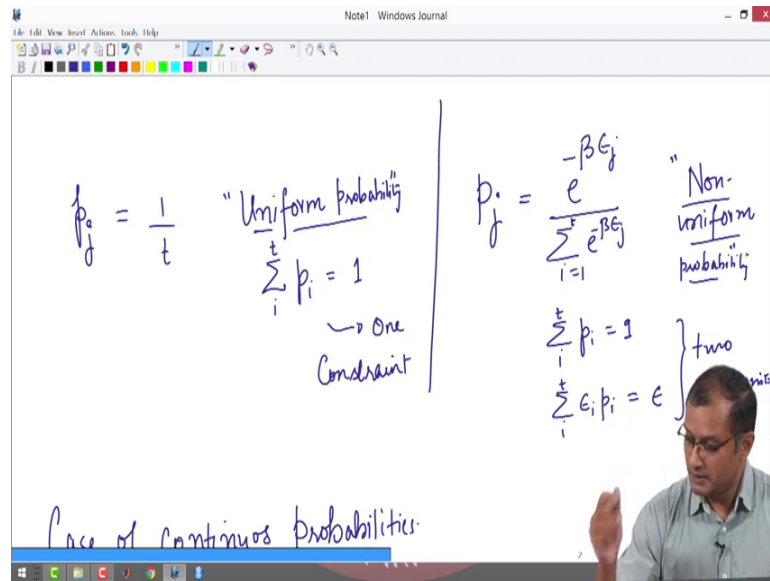 Note1 Windows Journal
File Edit View Insert Actions Tools Help
B I
p_j = 1/t
"Uniform probability"
∑_i^t p_i = 1
↳ One
Constraint
p_j = e^{-βϵ_j} / ∑_{i=1}^t e^{-βϵ_j}
"Non-
uniform
probability"
∑_i^t p_i = 1
∑_i^t ϵ_i p_i = ϵ
} two
Case of continuos probabilities.